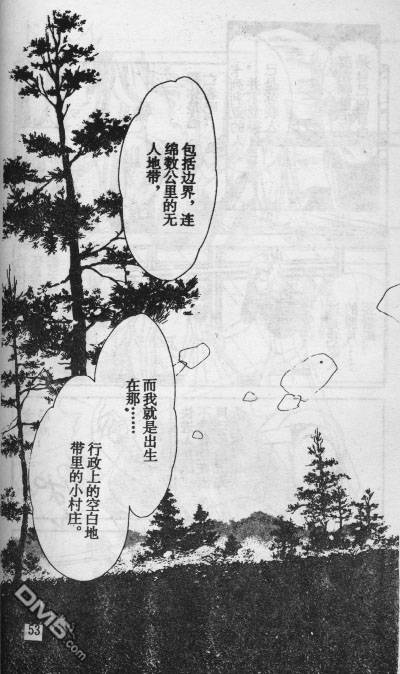 包括边界，连
绵数公里的无
人地带，
而我就是出生
在那．……
行政上的空白地
带里的小村庄。
53